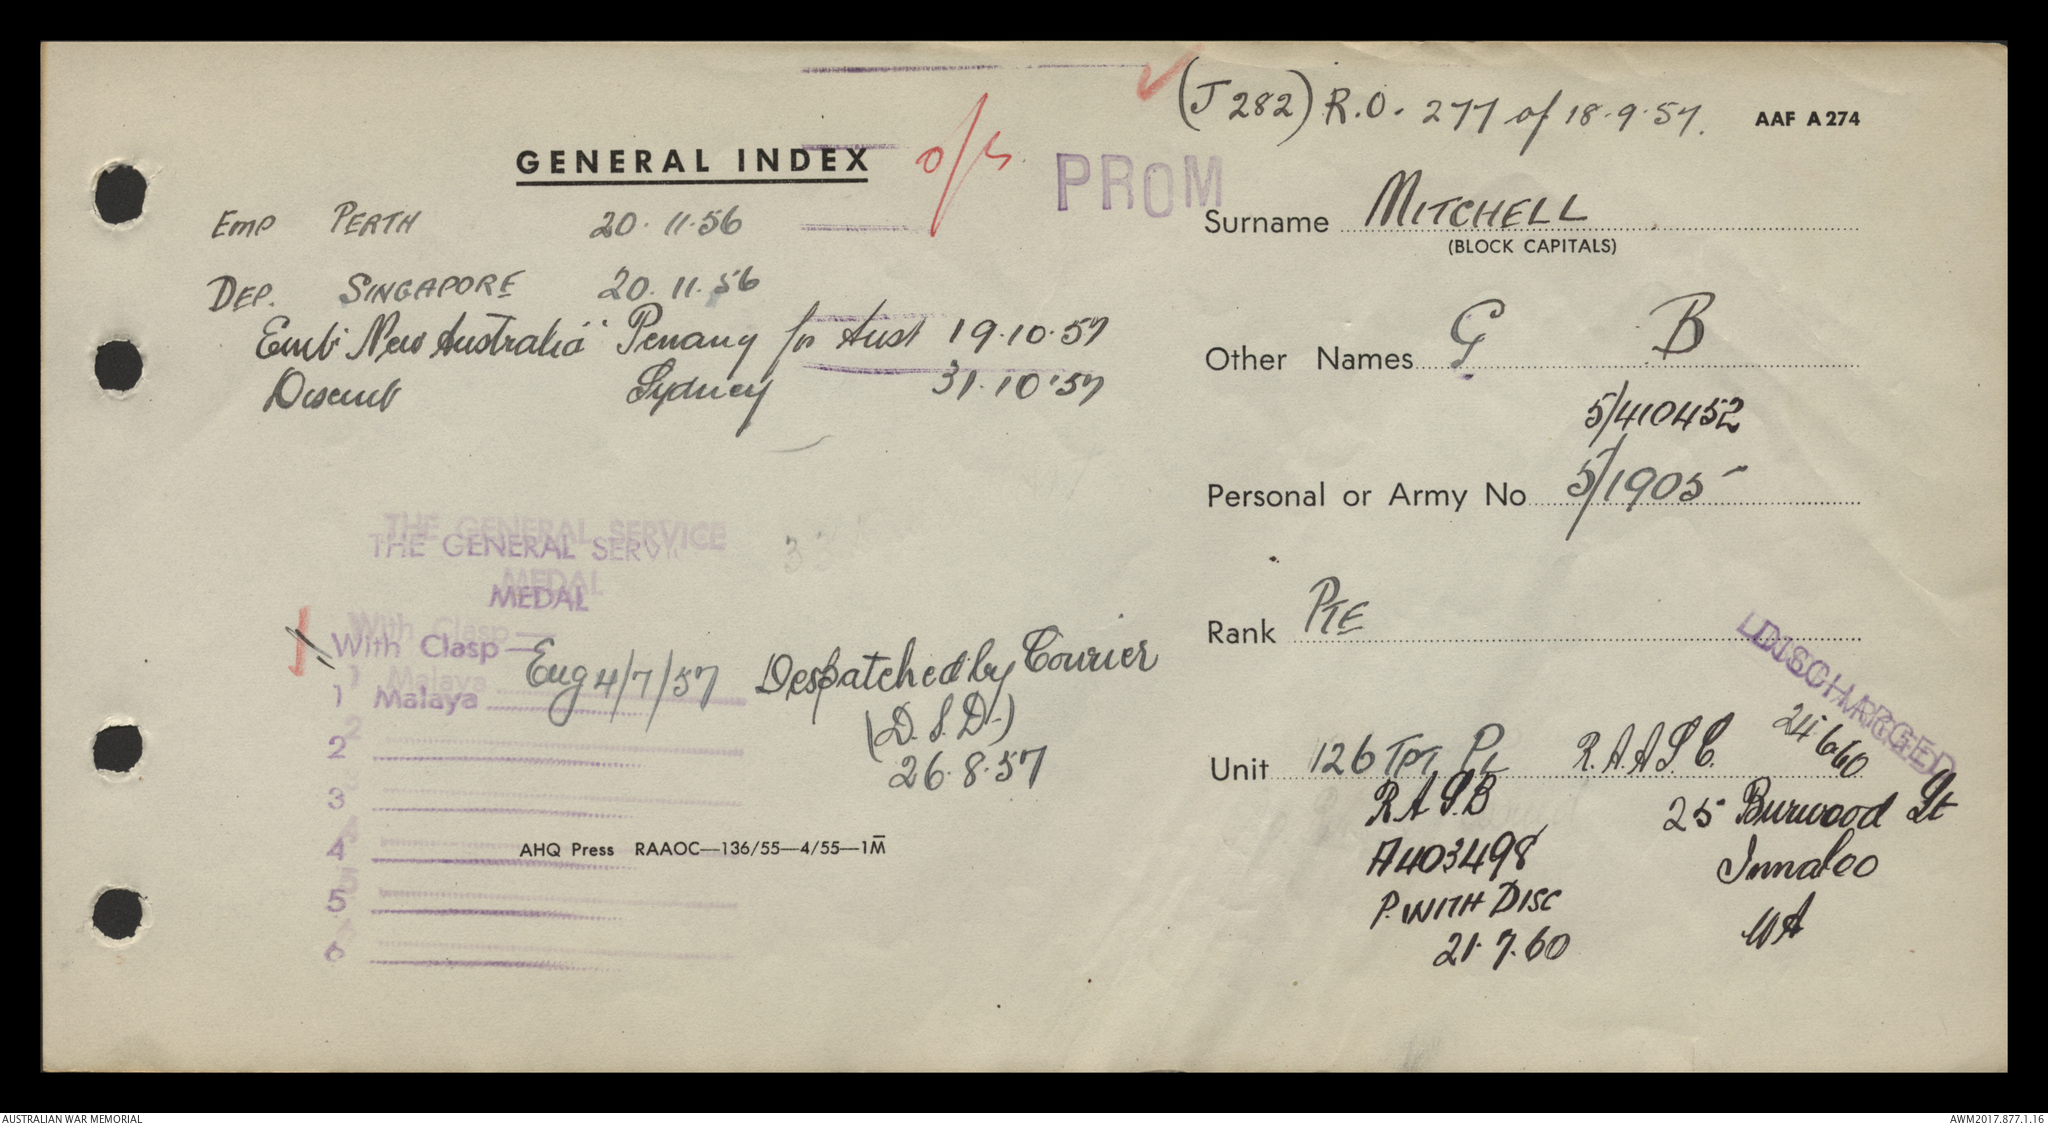 (J 282) R.O. 277 of 18.9.57. AAF A274
GENERAL INDEX o/s
PROM
Emp PERTH 20.11.56
DEP. SINGAPORE 20.11.56
Emb "New Australia" Penang for Aust 19.10.57
Disemb Sydney 31.10.57
THE GENERAL SERVICE
MEDAL
With Clasp
1 Malaya Eng 4/7/57 Despatched by Courier
(D.S.D.)
26.8.57
2
3
4
5
6
AHQ Press RAAOC—136/55—4/55—1M
Surname MITCHELL
(BLOCK CAPITALS)
Other Names G B
5/410452
Personal or Army No 5/1905
Rank PTE
DISCHARGED
24660
Unit 126 TPT PL R.A.A.S.C.
RASB
A403498
P. WITH DISC
21.7.60
25 Burwood St
Innaloo
WA
AUSTRALIAN WAR MEMORIAL AWM2017.877.1.16